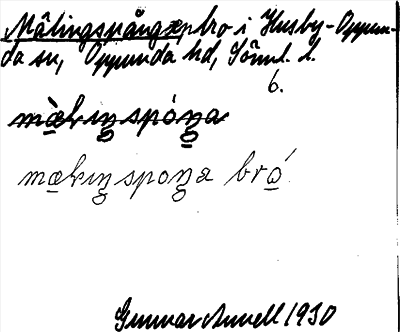 Målingspångæbro i Husby-Oppun-
da sn, Oppunda hd, Söml. l.
6.
mɑ̀lıŋspóŋa
mɑlıŋspoŋa bró
Gunnar 1930